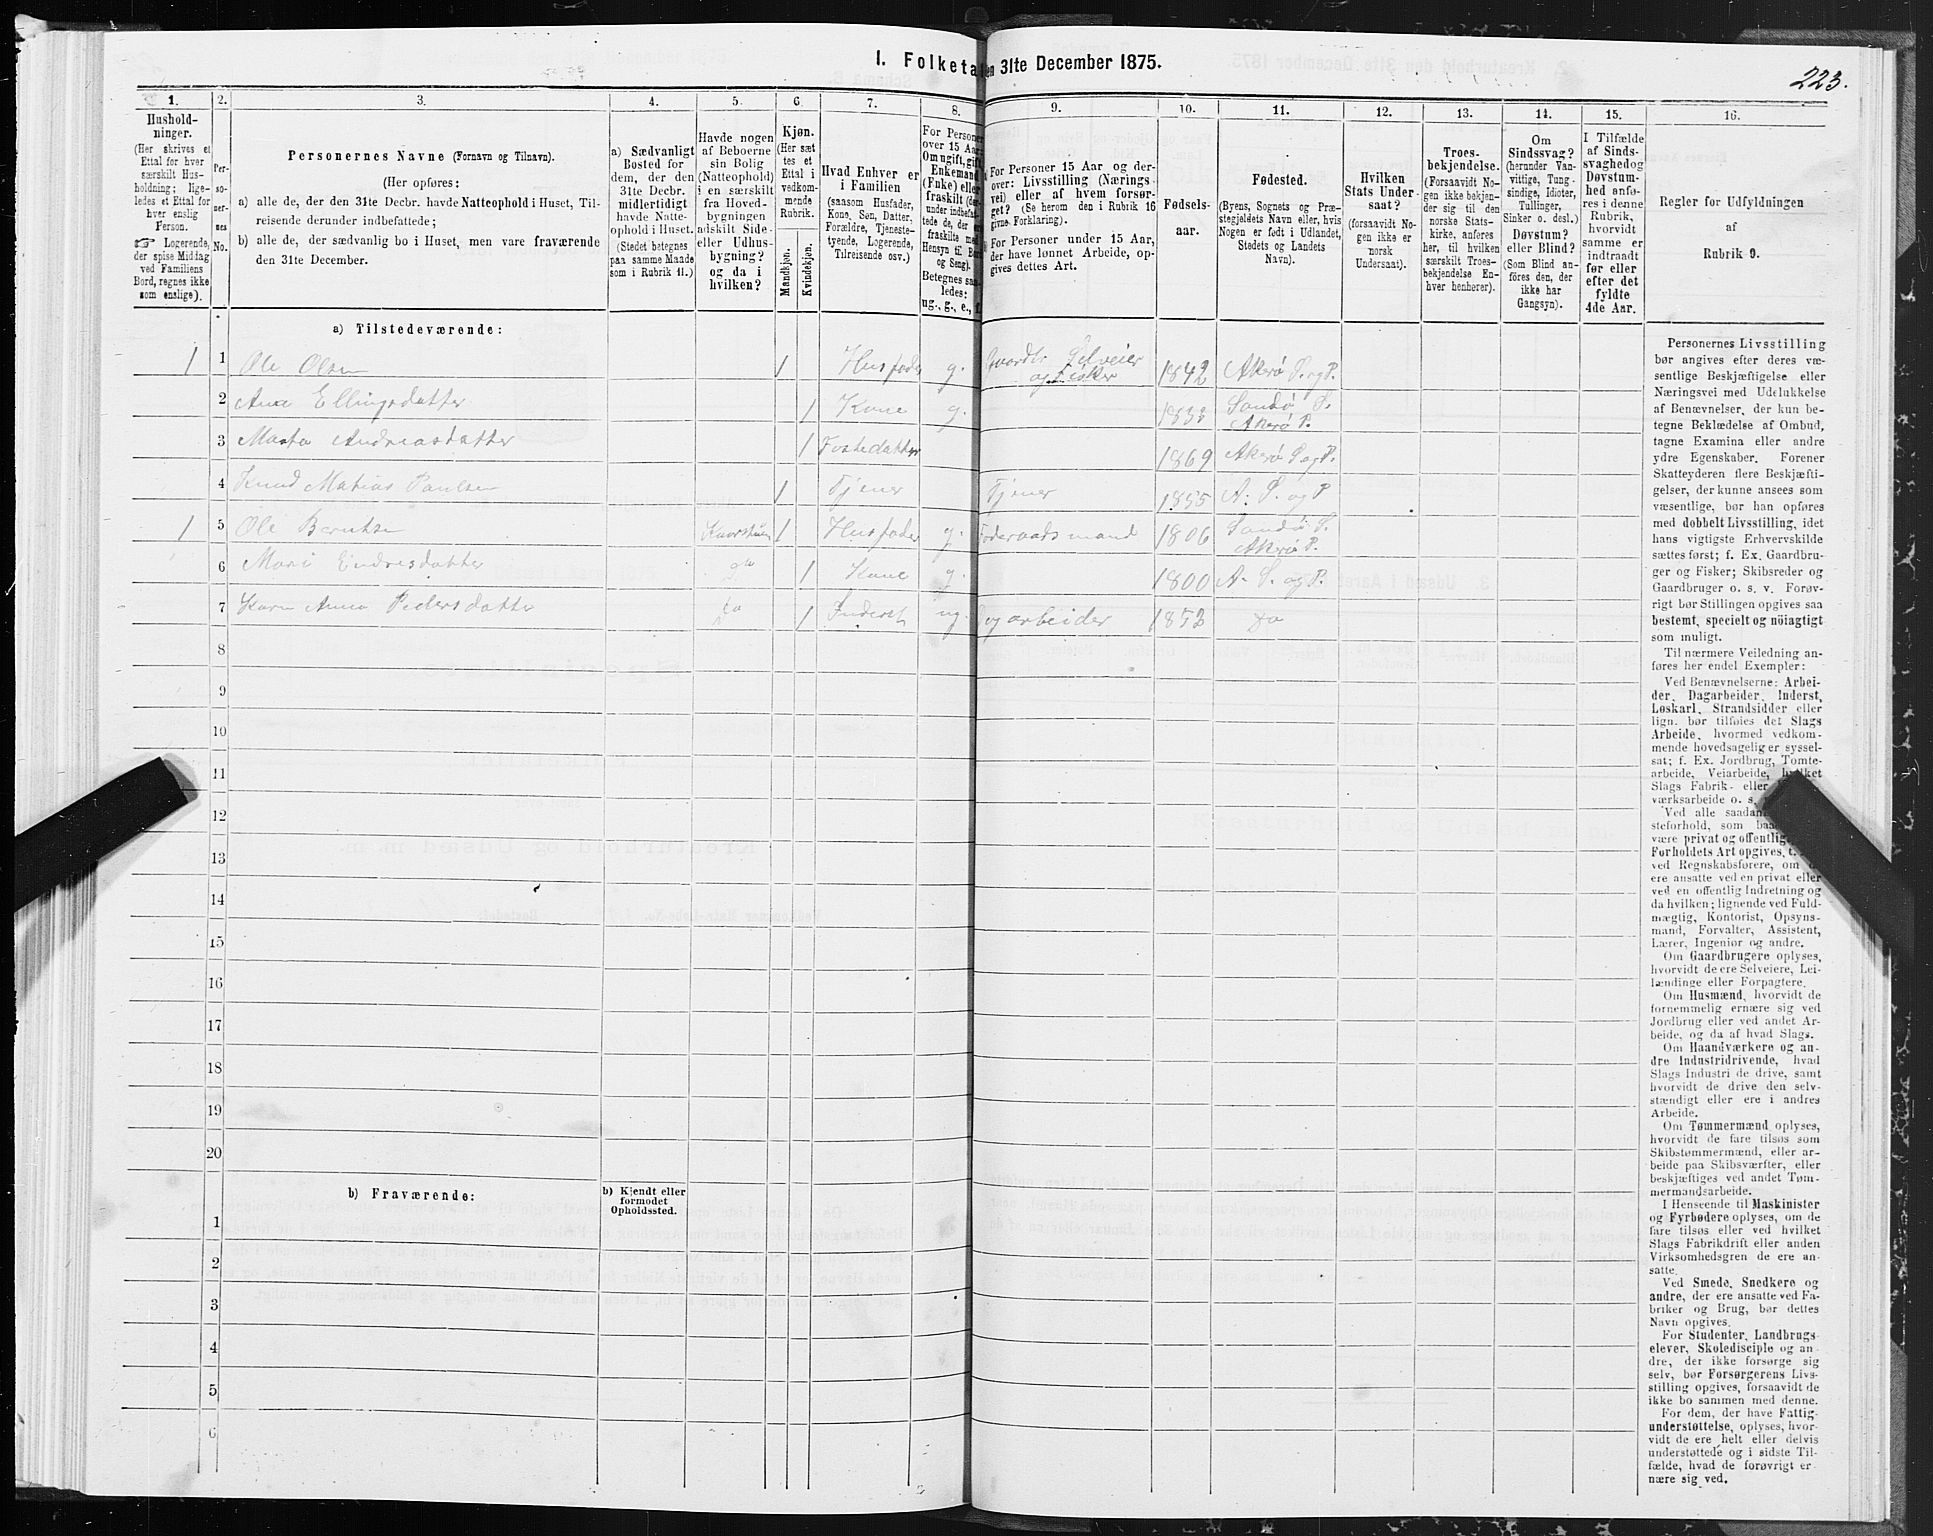 I. Folketal den 31te December 1875.
223.
1.
Hushold-
ninger.
(Her skrives et
Ettal for hver
særskilt Hus-
holdning; lige-
ledes et Ettal for
hver enslig
Person.
☞ Logerende,
der spise Middag
ved Familiens
Bord, regnes ikke
som enslige).
2.
Per-
so-
ner-
nes
No.
3.
Personernes Navne (Fornavn og Tilnavn).
(Her opføres:
a) alle de, der den 31te Decbr. havde Natteophold i Huset, Til-
reisende derunder indbefattede;
b) alle de, der sædvanlig bo i Huset, men vare fraværende
den 31te December.
4.
a) Sædvanligt
Bosted for
dem, der den
31te Decbr.
midlertidigt
havde Natte-
ophold i Huset.
(Stedet betegnes
paa samme Maade
som i Rubrik 11.)
5.
Havde nogen
af Beboerne
sin Bolig
(Natteophold)
i en særskilt
fra Hoved-
bygningen
adskilt Side-
eller Udhus-
bygning?
og da i
hvilken?
6.
Kjøn.
(Her sæt-
tes et
Ettal i
vedkom-
mende
Rubrik.
Mandkjøn.
Kvindekjøn.
7.
Hvad Enhver er
i Familien
(saasom Husfader,
Kone, Søn, Datter,
Forældre, Tjeneste-
tyende, Logerende,
Tilreisende osv.)
8.
For Personer
over 15 Aar:
Om ugift, gift,
Enkemand
(Enke) eller
fraskilt (der-
under indbefat-
tede de, der ere
fraskilte med
Hensyn til Bord
og Seng).
Betegnes saa-
ledes:
ug., g., e., f.
9.
For Personer 15 Aar og der-
over: Livsstilling (Nærings-
vei) eller af hvem forsør-
get? (Se herom den i Rubrik 16
givne Forklaring.)
For Personer under 15 Aar,
der have lønnet Arbeide, op-
gives dettes Art.
10.
Fødsels-
aar.
11.
Fødested.
(Byens, Sognets og Præ-
stegjeldets Navn eller, hvis
Nogen er født i Udlandet,
Stedets og Landets
Navn).
12.
Hvilken
Stats Under-
saat?
(forsaavidt No-
gen ikke er
norsk
Undersaat).
13.
Troes-
bekjendelse.
(Forsaavidt No-
gen ikke bekjen-
der sig til den
norske Stats-
kirke, anføres
her, til hvilken
særskilt Troes-
bekjendelse En-
hver henhører).
14.
Om
Sindssvag?
(herunder Van-
vittige, Tung-
sindige, Idioter,
Tullinger,
Sinker o. desl.)
Døvstum?
eller Blind?
(Som Blind an-
føres den, der
ikke har
Gangsyn).
15.
I Tilfælde
af Sinds-
svaghed og
Døvstum-
hed anfø-
res i denne
Rubrik,
hvorvidt
samme er
indtraadt
før eller
efter det
fyldte
4de Aar.
16.
Regler for Udfyldningen
af
Rubrik 9.
a) Tilstedeværende:
1 1 Ole Olsen 1 Husfader g. Gaardbr. Selveier og Fisker 1842 Akerø S. og P.
2 Ane Ellingsdatter 1 Kone g. 1832 Sandø S. Akerø P.
3 Marta Andreasdatter 1 Fostedatter 1869 Akerø S. og P.
4 Knud Matias Paulsen 1 Tjener Tjener 1855 A. S. og P
1 5 Ole Berntsen 1 Husfader g. Føderaadsmand 1806 Sandø S. Akerø P.
6 Mari Endresdatter 1 Kone g. 1800 A. S. og P.
7 Karen Anna Pedersdatter do 1 Inderst ug. Dagarbeider 1852 do
8
9
10
11
12
13
14
15
16
17
18
19
20
b) Fraværende:
b) Kjendt eller
formodet
Opholdssted.
1
2
3
4
5
6
Personernes Livsstilling
bør angives efter deres væ-
sentlige Beskjæftigelse eller
Næringsvei med Udelukkelse
af Benævnelser, der kun be-
tegne Beklædelse af Ombud,
tagne Examina eller andre
ydre Egenskaber. Forener
Skatteyderen flere Beskjæfti-
gelser, der kunne ansees som
væsentlige, bør han opføres
med dobbelt Livsstilling, idet
hans vigtigste Erhvervskilde
sættes først; f. Ex. Gaardbru-
ger og Fisker; Skibsreder og
Gaardbruger o. s. v. Forøv-
rigt bør Stillingen opgives saa
bestemt, specielt og nøiagtigt
som muligt.
Til nærmere Veiledning an-
føres her endel Exempler:
Ved Benævnelserne: Arbei-
der, Dagarbeider, Inderst,
Løskarl, Strandsidder eller
lign. bør tilføies det Slags
Arbeide, hvormed vedkom-
mende hovedsagelig er syssel-
sat; f. Ex. Jordbrug, Tomte-
arbeide, Veiarbeide, hvilket
Slags Fabrik- eller
værksarbeide o. s.
Ved alle saadan
steforhold, som baa
være privat og offentlig
Forholdets Art opgives,
ved Regnskabsførere, om
ere ansatte ved en privat eller
ved en offentlig Indretning og
da hvilken; lignende ved Fuld-
mægtig, Kontorist, Opsyns-
mand, Forvalter, Assistent,
Lærer, Ingeniør og andre.
Om Gaardbrugere oplyses,
hvorvidt de ere Selveiere, Lei-
lændinge eller Forpagtere.
Om Husmænd, hvorvidt de
fornemmelig ernære sig ved
Jordbrug eller ved andet Ar-
beide, og da af hvad Slags.
Om Haandværkere og an-
dre Industridrivende, hvad
Slags Industri de drive, samt
hvorvidt de drive den selv-
stændigt eller ere i andres
Arbeide.
Om Tømmermænd oplyses,
hvorvidt de fare tilsøs som
Skibstømmermænd, eller ar-
beide paa Skibsværfter, eller
beskjæftiges ved andet Tøm-
mermandsarbeide.
I Henseende til Maskinister
og Fyrbødere oplyses, om de
fare tilsøs eller ved hvilket
Slags Fabrikdrift eller anden
Virksomhedsgren de ere an-
satte.
Ved Smede, Snedkere og
andre, der ere ansatte ved Fa-
briker og Brug, bør dettes
Navn opgives.
For Studenter, Landbrugs-
elever, Skoledisciple og an-
dre, der ikke forsørge sig
selv, bør Forsørgerens Livs-
stilling opgives, forsaavidt de
ikke bo sammen med denne.
For dem, der have Fattig-
understøttelse, oplyses, hvor-
vidt de ere helt eller delvis
understøttede og i sidste Til-
fælde, hvad de forøvrigt er-
nære sig ved.